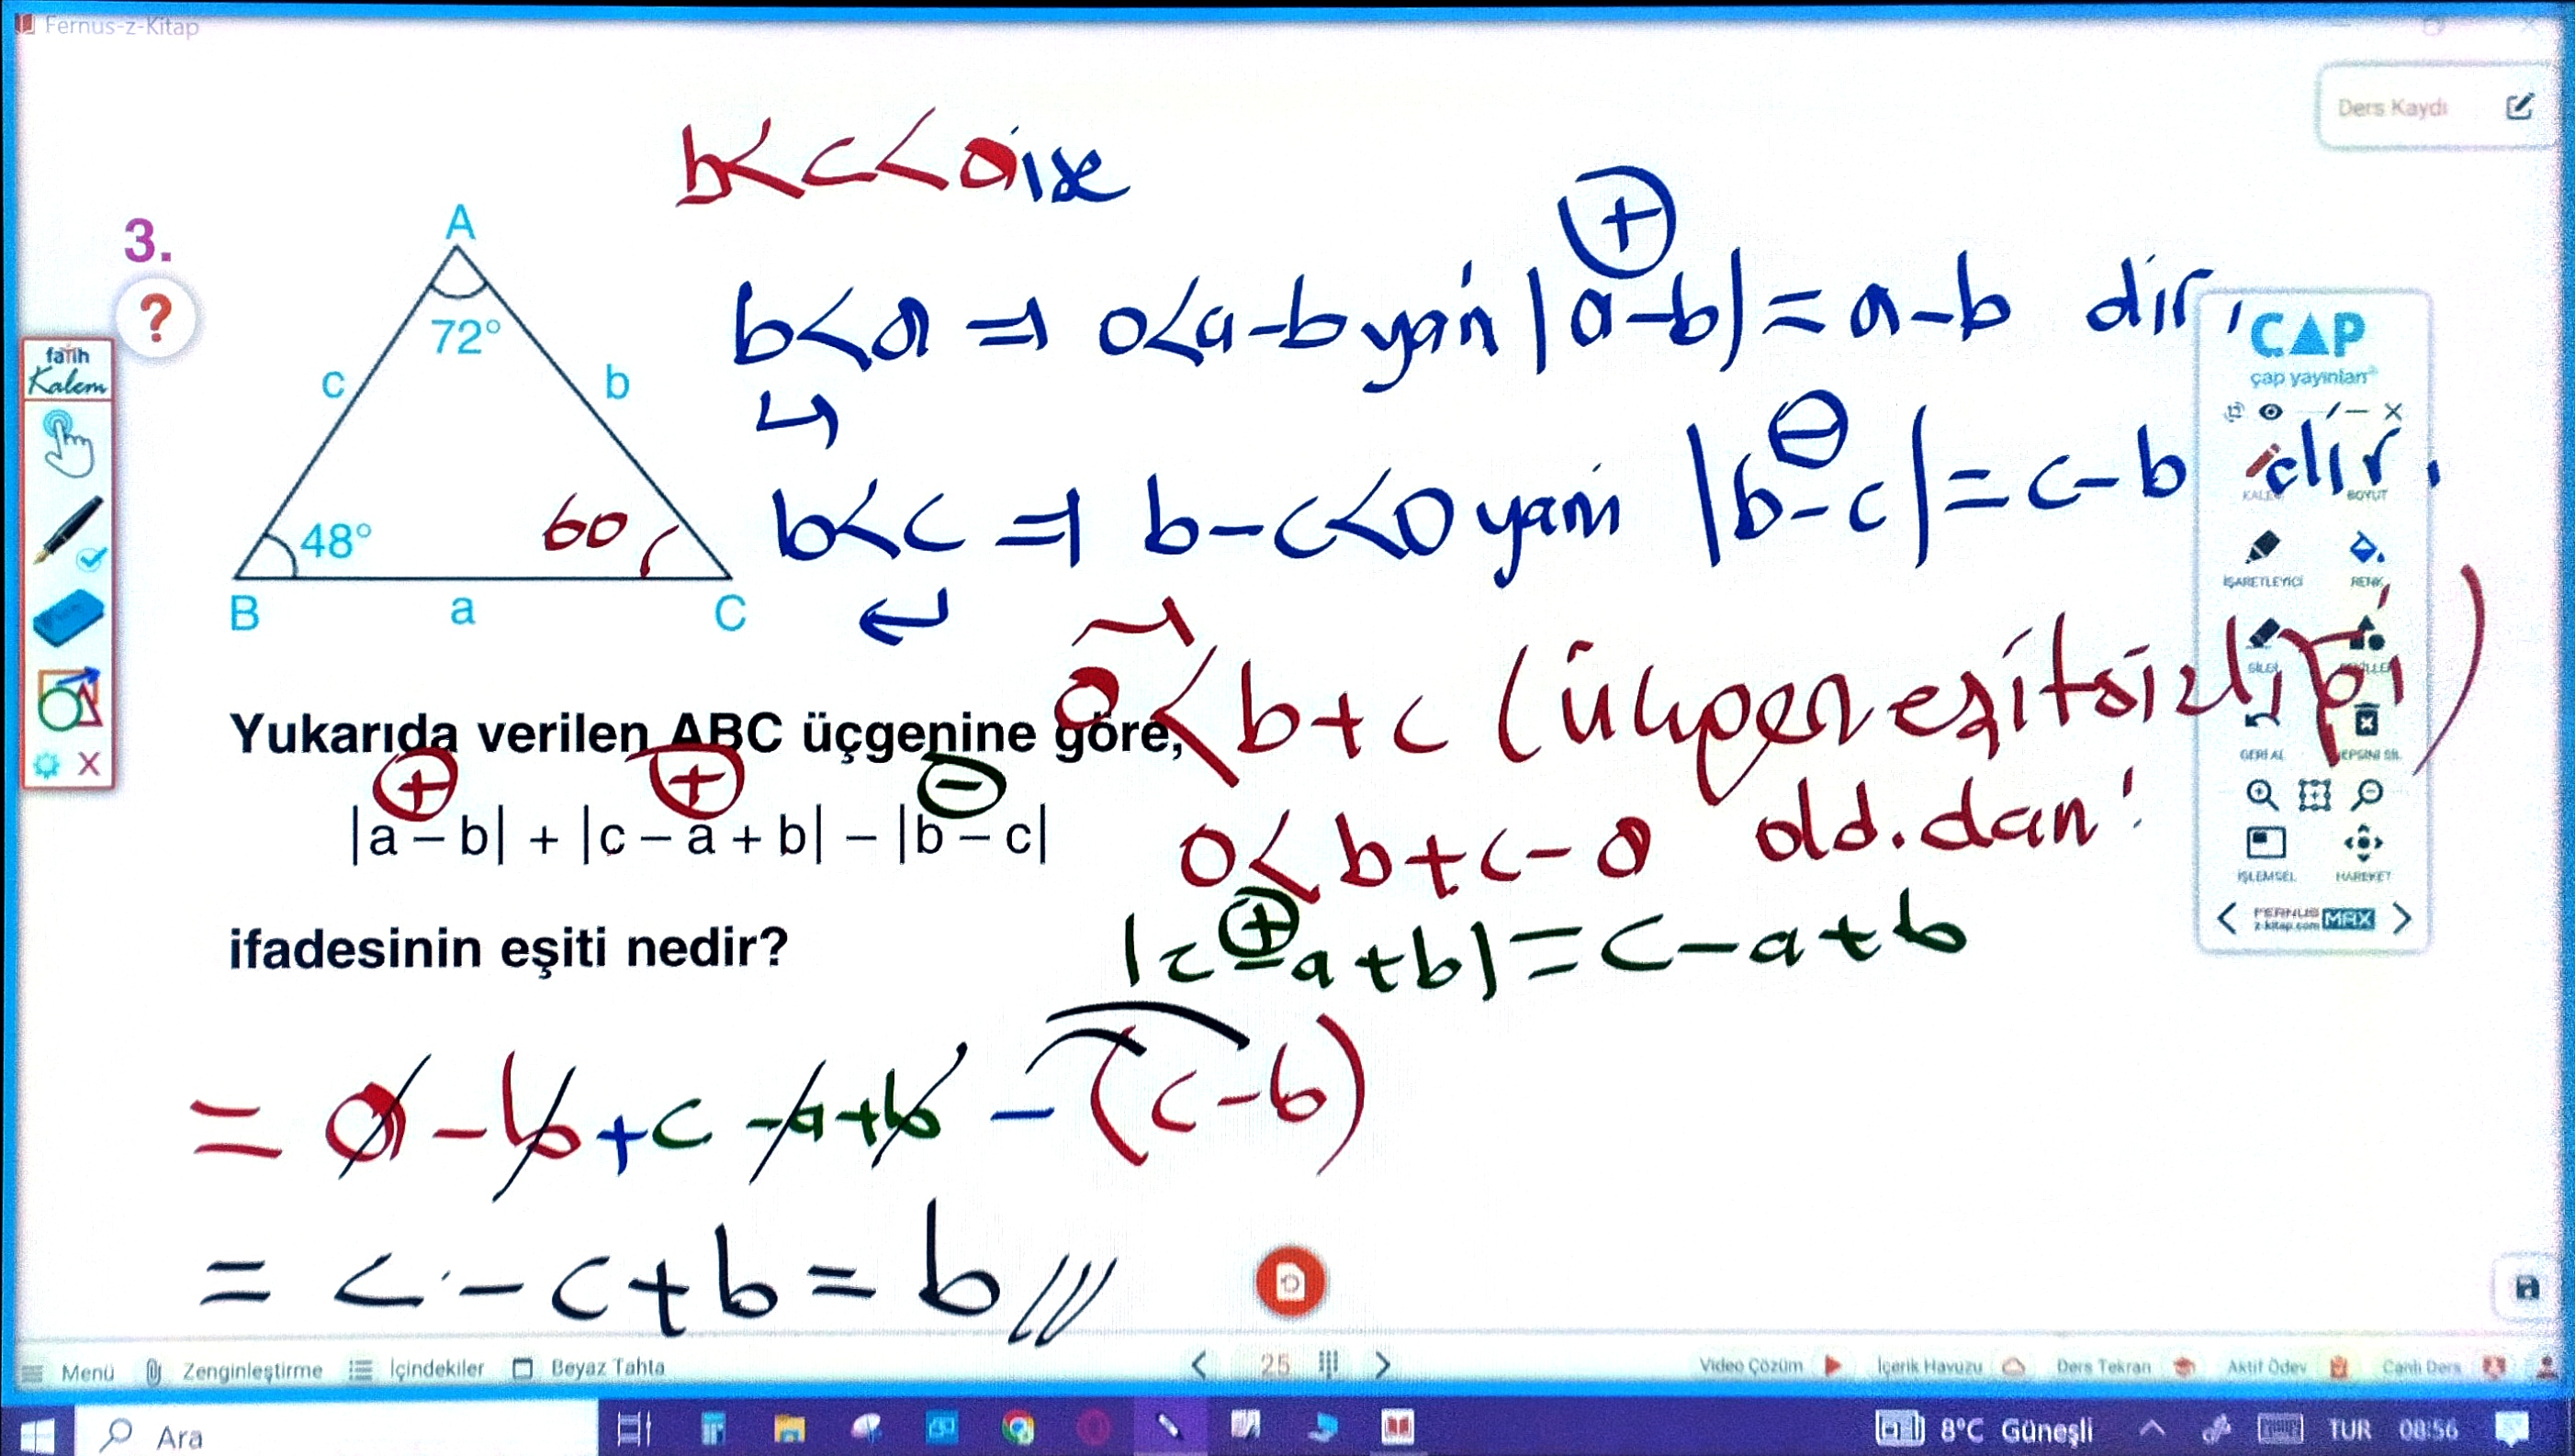 Fernus-z-Kitap
Ders Kaydı
b<c<a ise
3.
?
A
72°
c
b
48°
60
B
a
C
b<a ⇒ 0<a-b yani |a-b| = a-b dir.
+
b<c ⇒ b-c<0 yani |b-c| = c-b dir.
-
fatih
Kalem
ÇAP
çap yayınları
KALEM
BOYUT
İŞARETLEYİCİ
RENK
SİLGİ
GERİ AL
HEPSİNİ SİL
İŞLEMSEL
HAREKET
FERNUS
z-kitap.com
MAX
a<b+c (üçgen eşitsizliği)
Yukarıda verilen ABC üçgenine göre,
+ + -
|a – b| + |c – a + b| – |b – c|
0<b+c-a old.dan:
ifadesinin eşiti nedir?
+
|c-a+b| = c-a+b
= a-b+c-a+b-(c-b)
= c-c+b = b
Menü
Zenginleştirme
İçindekiler
Beyaz Tahta
25
Video Çözüm
İçerik Havuzu
Ders Tekrarı
Aktif Ödev
Canlı Ders
Ara
8°C Güneşli
TUR
08:56